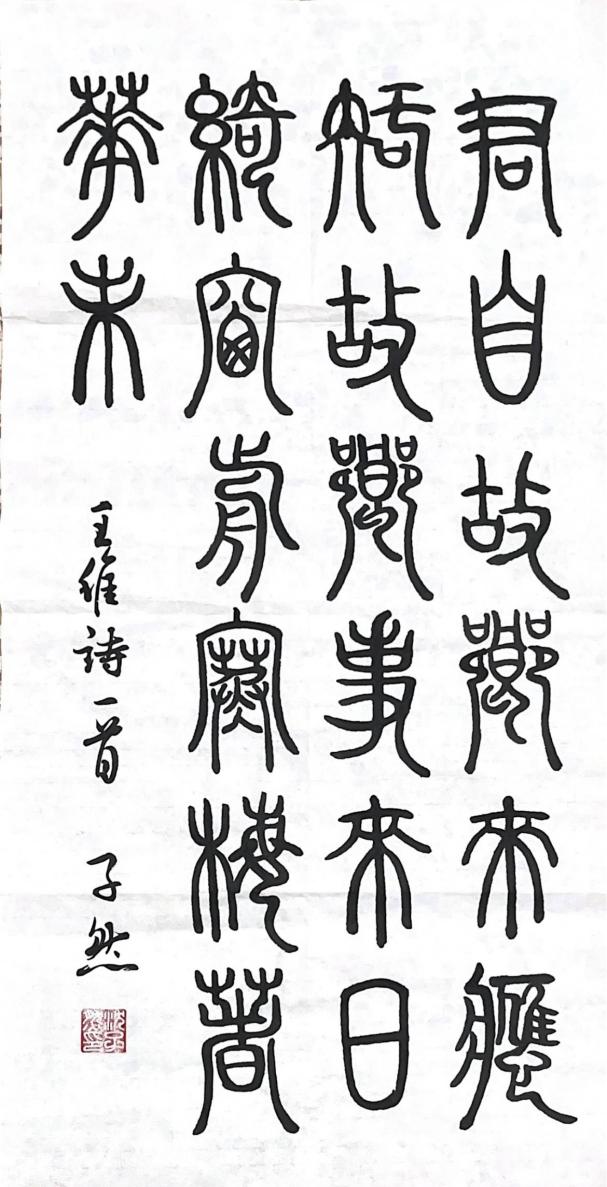 君自故鄉來應
知故鄉事來日
綺窗前寒梅著
華未
王維詩一首 子然